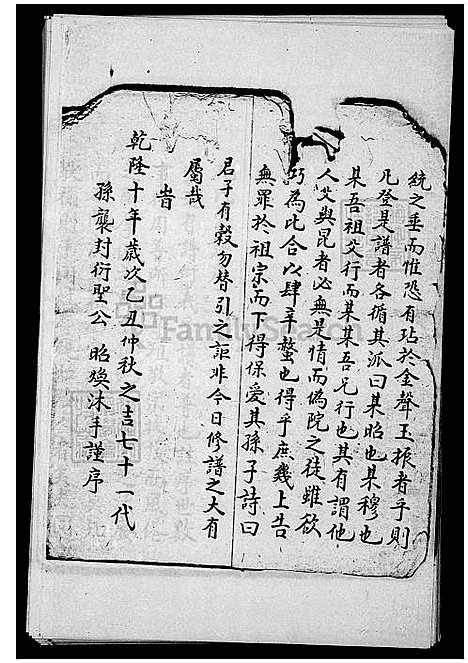 統之垂而惟恐有玷於金聲玉振者乎則
凡登是譜者各循其派曰某昭也某穆也
某吾祖父行而某某吾兄行也其有謂他
人父與昆者必無是情而偽院之徒雖欲
巧為比合以肆辛螫也得乎庶幾上告
無罪於祖宗而下得保愛其孫子詩曰
君子有穀勿替引之詎非今日修譜之大有
屬哉
旹
乾隆十年歲次乙丑仲秋之吉七十一代
孫襲封衍聖公 昭煥沐手謹序
FamilySearch